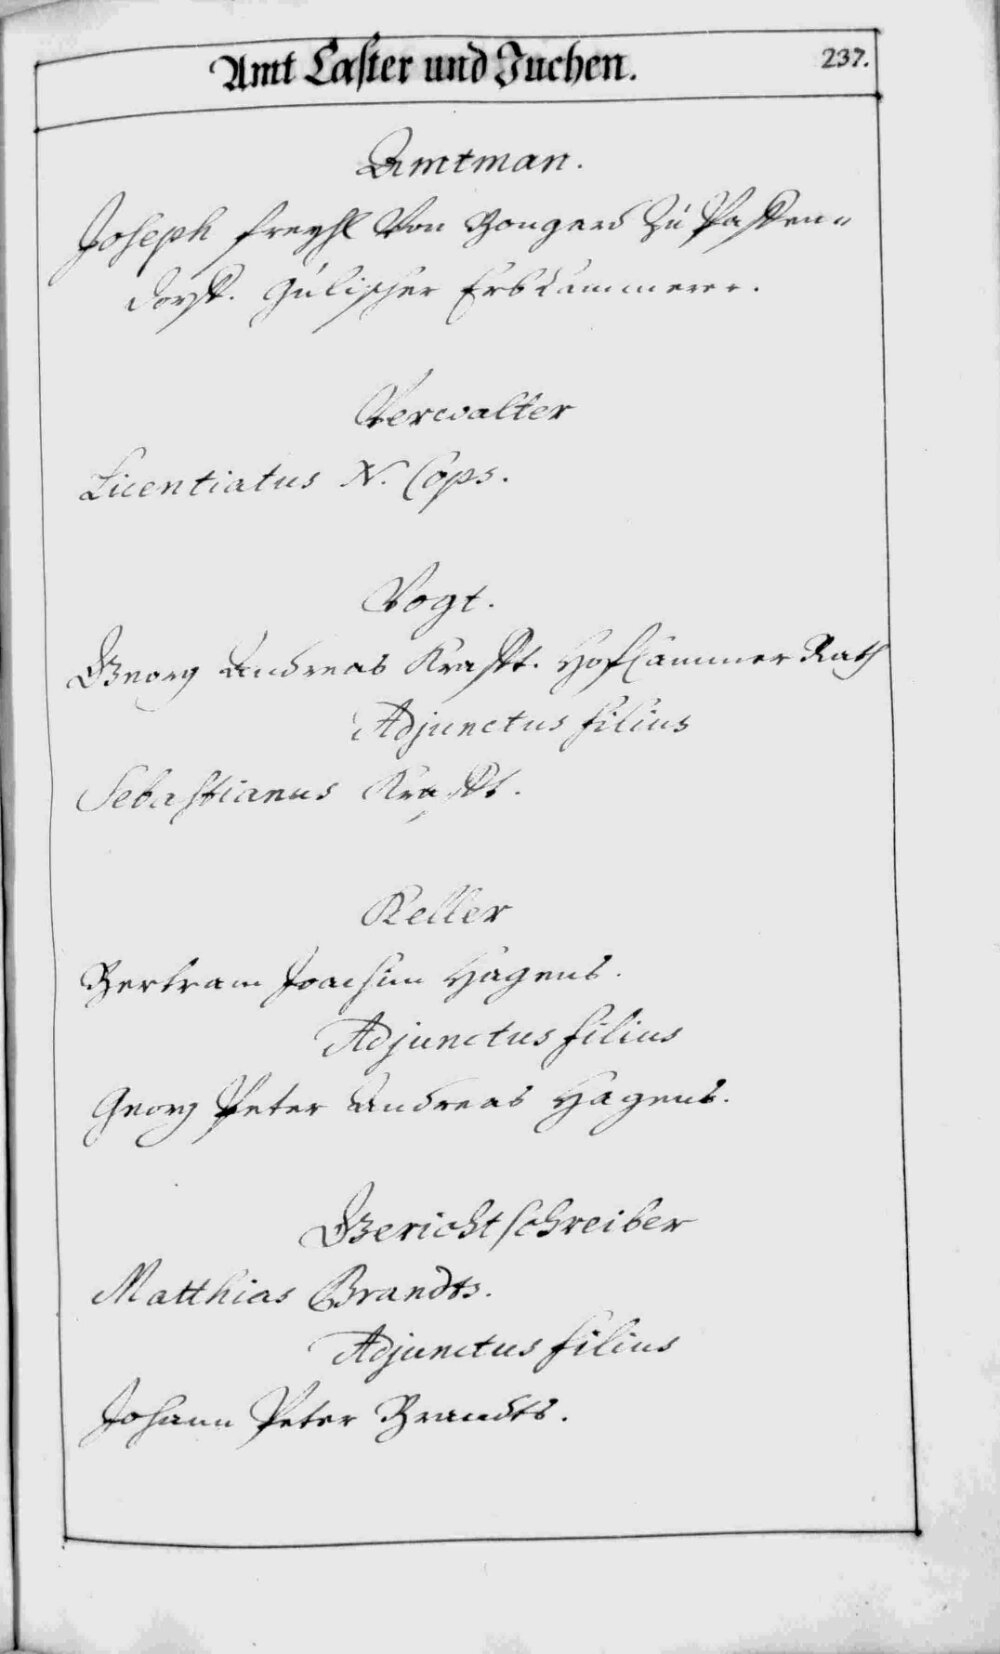 Amt Caster und Juchen.
237.
Amtman.
Joseph freyh. Von Bongard Zu Paffen=
dorff. Gulischer Erbkammerer.
Verwalter
Licentiatus N. Cops.
Vogt.
Georg Andreas Krafft. HofCammer Rath
Adjunctus filius
Sebastianus Krafft.
Keller
Bertram Joachim Hagens.
Adjunctus filius
Georg Peter Andreas Hagens.
Gerichtschreiber
Matthias Brandts.
Adjunctus filius
Johann Peter Brandts.